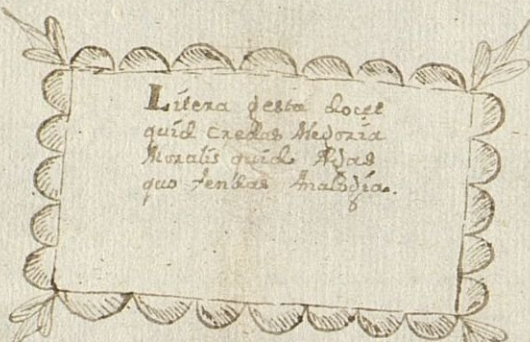 Litera gesta docet
quid credas Allegoria
Moralis quid Agas
quo tendas Analogia.